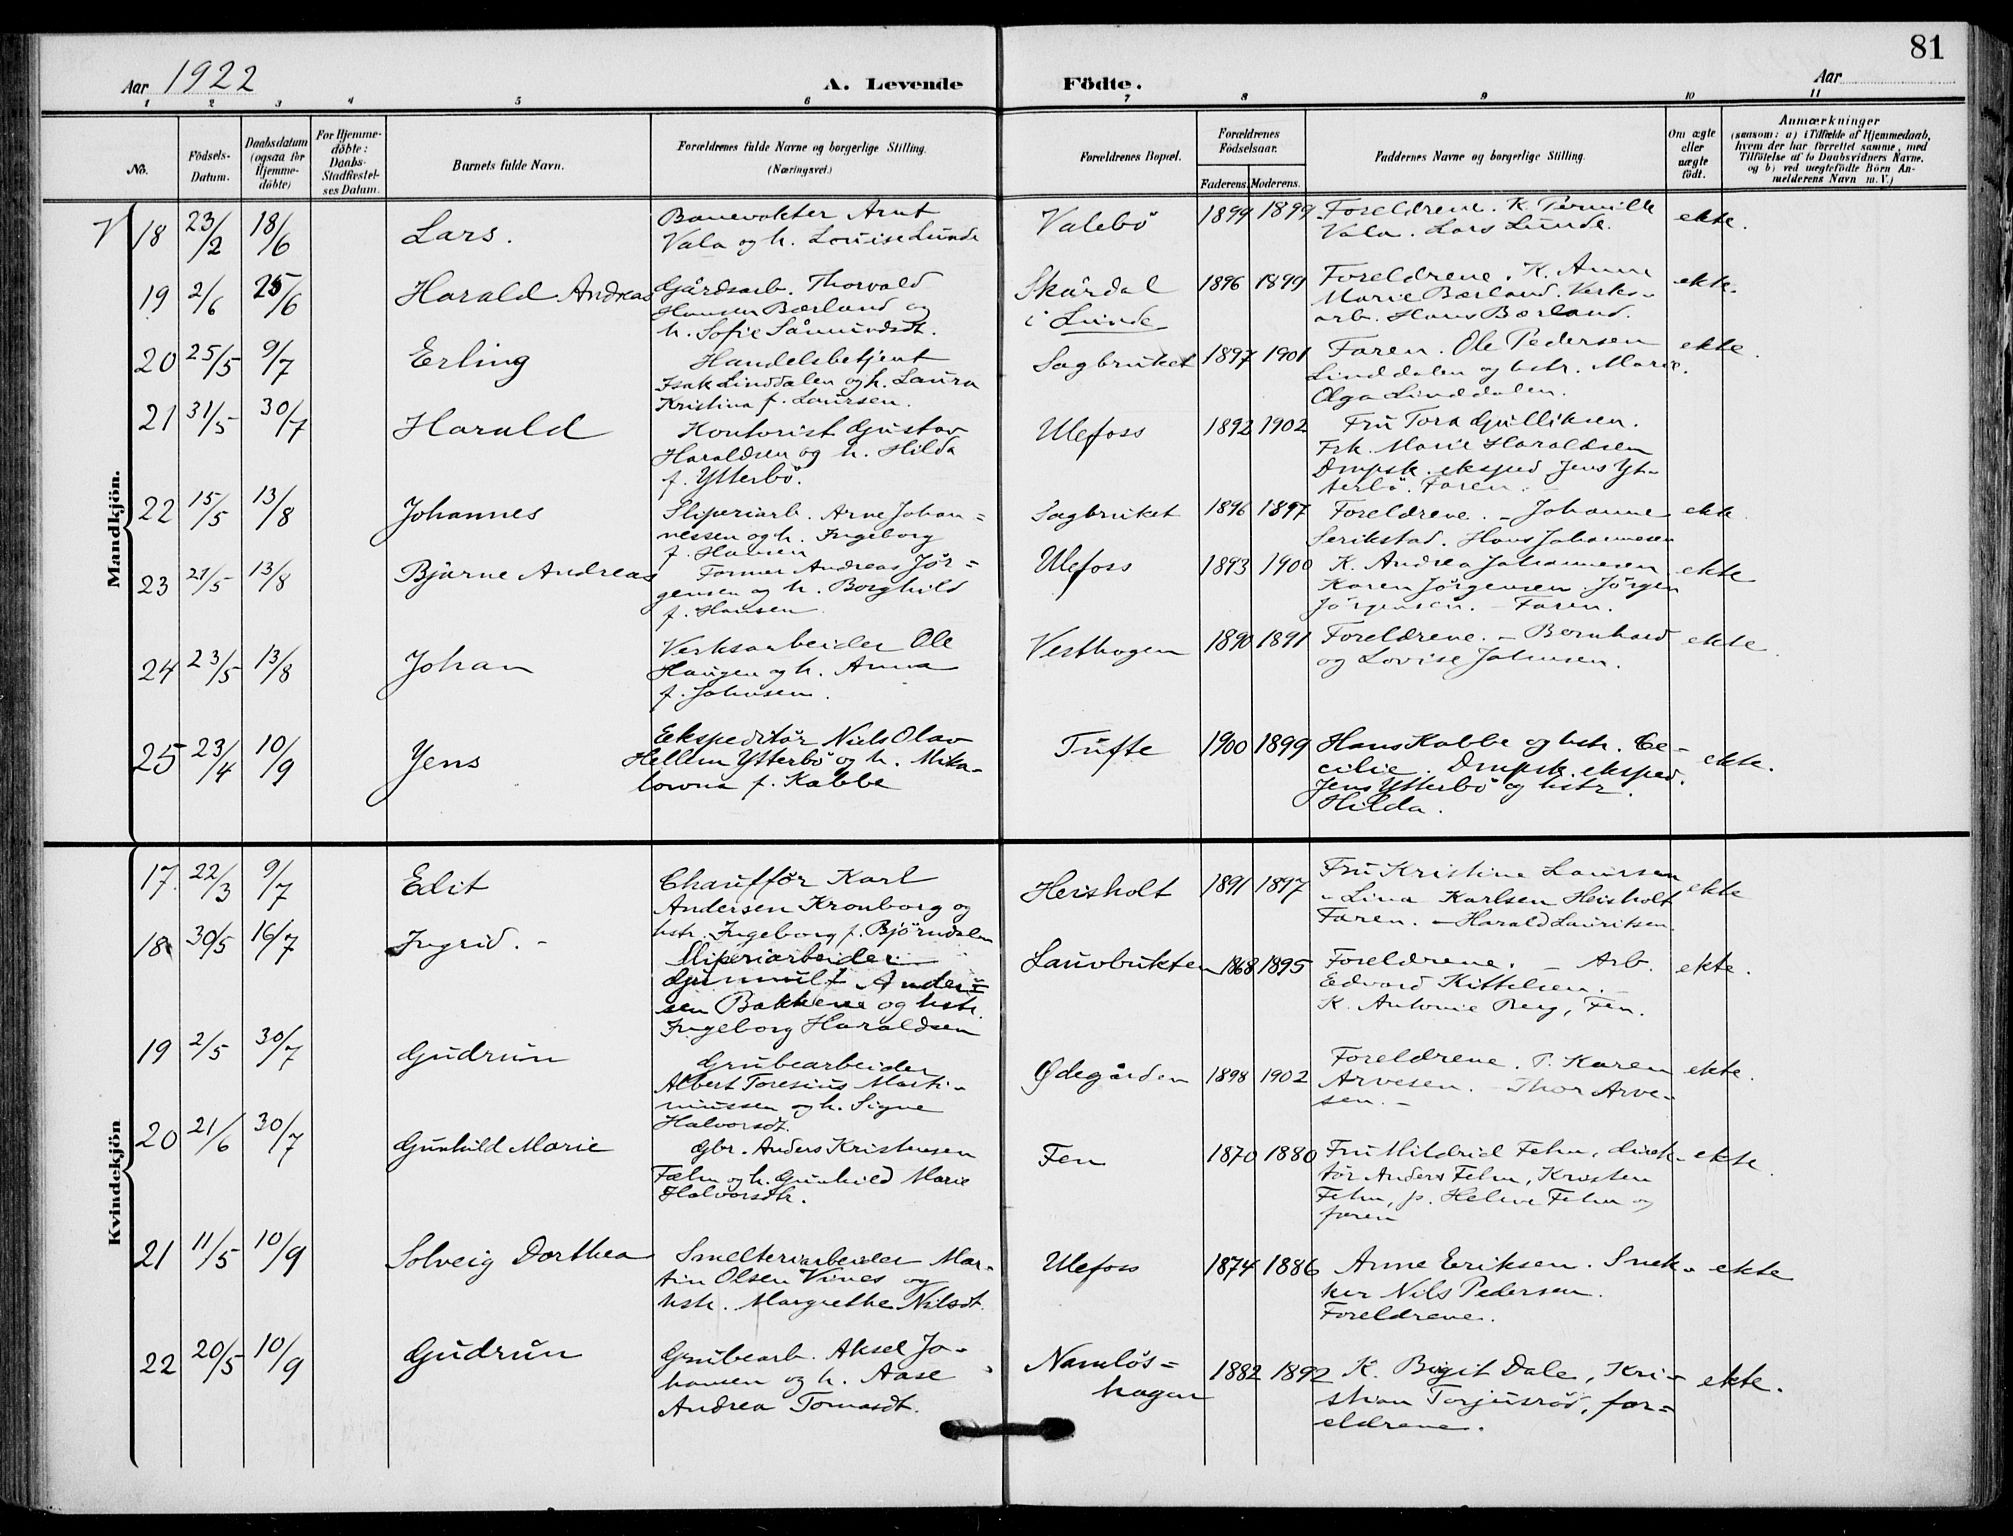 81
Aar 1922
A. Levende Födte.
Aar
1 2 3 4 5 6 7 8 9 10 11
No.
Födsels-Datum.
Daabsdatum (ogsaa for Hjemme-döbte)
For Hjemme-döbte: Daabs-Stadfæstel-ses Datum.
Barnets fulde Navn.
Forældrenes fulde Navne og borgerlige Stilling. (Næringsvei.)
Forældrenes Bopæl.
Forældrenes Födselsaar.
Faderens. Moderens.
Faddernes Navne og borgerlige Stilling.
Om ægte eller uægte födt.
Anmærkninger
(saasom: a) i Tilfælde af Hjemmedaab, hvem der har forrettet samme, med Tilföielse af to Daabsvidners Navne, og b) ved uægtefödte Börn An-melderens Navn m. V.)
Mandkjön.
18 23/2 18/6 Lars.
Banevokter Arnt
Vala og h. Louise Lunde
Valebö 1899 1899
Foreldrene. K. Pernille
Vala. Lars Lunde.
ekte.
19 2/6 25/6 Harald Andreas
Gårdsarb. Thorvald
Hansen Bærland og
h. Sofie Såmundsdt.
Skårdal
i Lunde
1896 1899
Foreldrene. K. Anne
Marie Bærland. Verks-
arb. Hans Bærland.
ekte.
20 25/5 9/7 Erling
Handelsbetjent
Isak Linddalen og h. Laura
Kristina f. Laursen.
Sagbruket 1897 1901
Faren. Ole Pedersen
Linddalen og hstr. Marie.
Olga Linddalen.
ekte.
21 31/5 30/7 Harald
Kontorist Gustav
Haraldsen og h. Hilda
f. Ytterbö.
Ulefoss 1892 1902
Fru Tora Gulliksen.
Frk. Marie Haraldsen
Dmpsk. eksped Jens Yt-
terbö. Faren.
22 15/5 13/8 Johannes
Sliperiarb. Arne Johan=
nessen og h. Ingeborg
f. Hansen
Sagbruket 1896 1897
Foreldrene. - Johanne
Serikstad. Hans Johannesen
ekte
23 21/5 13/8 Bjarne Andreas
Former Andreas Jör=
gensen og h. Borghild
f. Hansen
Ulefoss 1893 1900
K. Andrea Johannesen
Karen Jörgensen Jörgen
Jörgensen. - Faren.
ekte
24 23/5 13/8 Johan
Verksarbeider Ole
Haugen og h. Anna
f. Johnsen.
Vesthagen 1890 1891
Foreldrene. - Bernhard
og Lovise Johnsen.
ekte.
25 23/4 10/9 Jens
Ekspeditör Niels Olav
Hellem Ytterbö og h. Mika-
lowna f. Kabbe
Tufte 1900 1899
Hans Kabbe og hstr. Ce-
cilie. Dmpsk. eksped.
Jens Ytterbö og hstr.
Hilda.
ekte.
Kvindekjön
17 22/3 9/7 Edit
Chaufför Karl
Andersen Kronborg og
hstr. Ingeborg f. Björndalen
Heisholt 1891 1897
Fru Kristine Laursen
" Lina Karlsen Heisholt
Faren. - Harald Lauritsen
ekte
18 30/5 16/7 Ingrid. -
Sliperiarbeider
Gunnulf Ander=
sen Bakkene og hstr.
Ingeborg Haraldsen
Lauvbukten 1868 1895
Foreldrene. - Arb.
Edvard Kittelsen. -
K. Antonie Berg, Fen.
ekte.
19 2/5 30/7 Gudrun
Grubearbeider
Albert Toresius Marti-
niussen og h. Signe
Halvorsdt.
Ødegården 1898 1902
Foreldrene. P. Karen
Arvesen. - Thor Arve-
sen. -
ekte.
20 21/6 30/7 Gunhild Marie
Gbr. Anders Kristensen
Fæhn og h. Gunhild Marie
Halvorsdtr.
Fen 1870 1880
Fru Mildrid Fehn, direk-
tör Anders Fehn, Kristen
Fehn, p. Helene Fehn og
faren
ekte.
21 11/5 10/9 Solveig Dorthea
Smelteriarbeider Mar-
tin Olsen Vines og
hstr. Margrethe Nilsdt.
Ulefoss 1874 1886
Anne Eriksen. Snek-
ker Nils Pedersen.
Foreldrene.
ekte
22 20/5 10/9 Gudrun
Grubearb. Aksel Jo-
hansen og h. Aase
Andrea Tomasdt.
Namlös=
hagen
1882 1892
K. Bigit Dale, Kri-
stian Torjusröd, for=
eldrene.
ekte.